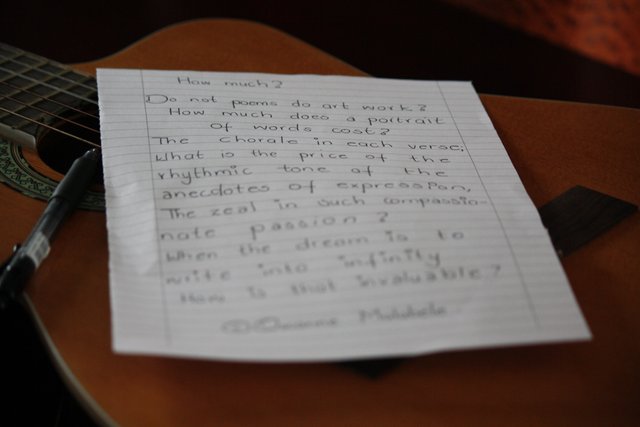 How much?
Do not poems do art work?
How much does a portrait
Of words cost?
The Chorale in each verse,
What is the price of the
rhythmic tone of the
anecdotes of expression,
The zeal in such compassio-
nate passion?
When the dream is to
write into infinity
How is that invaluable?